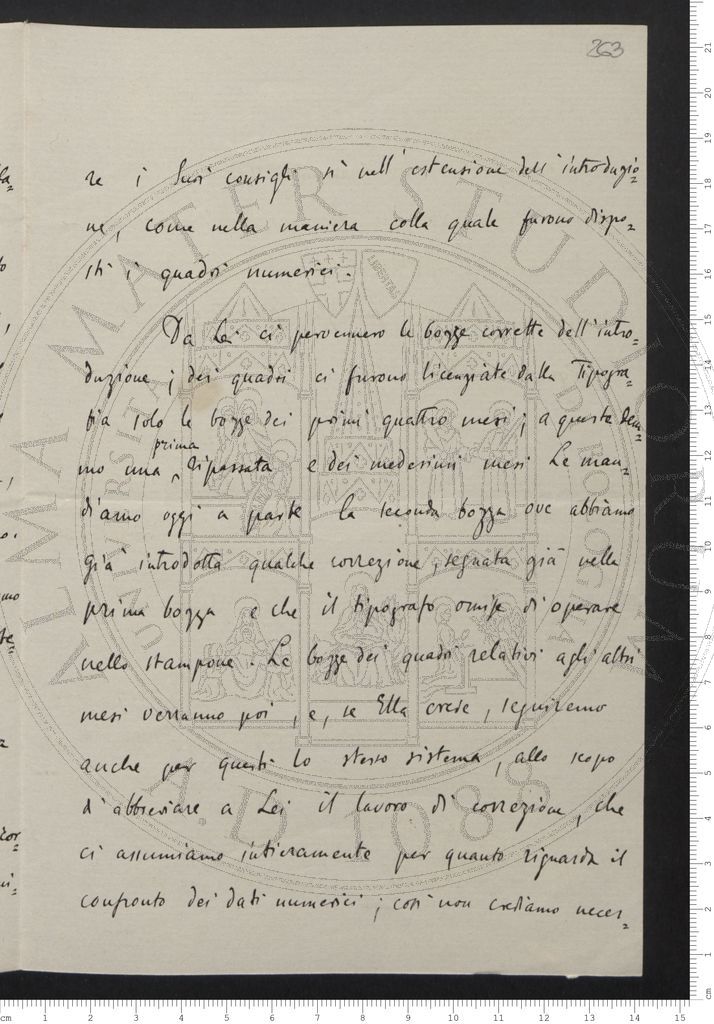 263
re i Suoi consigli sì nell'estensione dell'introduzio=
ne, come nella maniera colla quale furono dispo=
sti i quadri numerici.
Da Lei ci pervennero le bozze corrette dell'intro=
duzione; dei quadri ci furono licenziate dalla Tipogra=
fia solo le bozze dei primi quattro mesi; a queste dem=
mo una prima ripassata e dei medesimi mesi Le man=
diamo oggi a parte la seconda bozza ove abbiamo
già introdotta qualche correzione, segnata già nella
prima bozza e che il tipografo omise di operare
nello stampone. Le bozze dei quadri relativi agli altri
mesi verranno poi, e, se Ella crede, seguiremo
anche per questi lo stesso sistema, allo scopo
d'abbreviare a Lei il lavoro di correzione, che
ci assumiamo intieramente per quanto riguarda il
confronto dei dati numerici; così non crediamo neces=